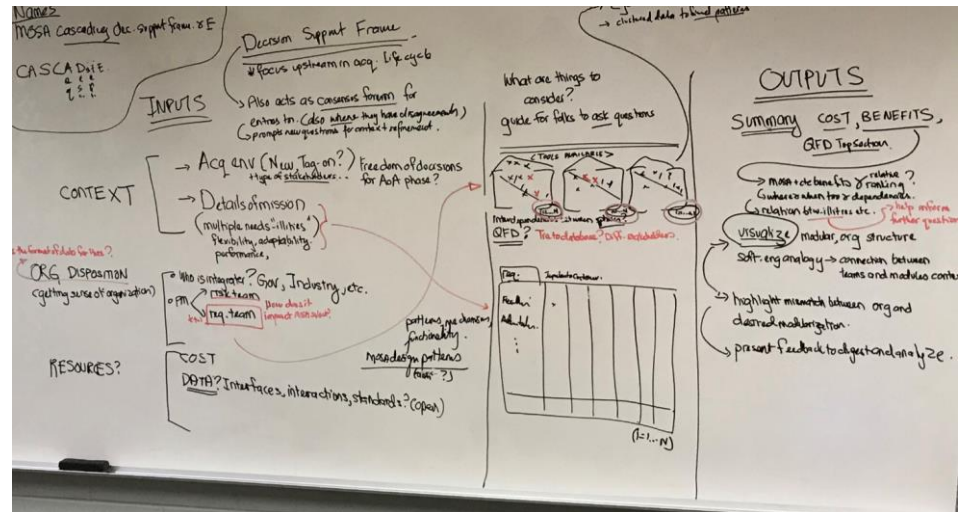 Names
MOSA Cascading dec. support fram.
CASCADiE
Decision Support Frame
focus upstream in acq. Life cycle
INPUTS
Also acts as consensus forum for
(also where they have disagreements)
prompts new questions for context refinement.
CONTEXT
Acq env (New, Tag-on?)
type of stakeholders..
Freedom of decisions
for AoA phase?
Details of mission
(multiple needs "ilities"
flexibility, adaptability,
performance,
the format of data for this?
ORG DISPOSITION
(getting sense of organization)
Who is integrator? Gov, Industry, etc.
PM
risk team
req. team
How does it
impact
RESOURCES?
COST
DATA? Interfaces, interactions, standards? (open)
patterns, mechanisms,
functionality.
MOSA design patterns
→ clustered data to find patterns
What are things to
consider?
guide for folks to ask questions
<TOOLS AVAILABLE>
Interdependencies between phases?
QFD?
Tie to database? Diff. stakeholders.
Req.
(1=1...N)
OUTPUTS
Summary COST, BENEFITS,
QFD Top section
→ MOSA + etc benefits ranking?
relative
where & when tools & dependencies.
relation btw. ilities etc.
→ help inform
further question
Visualize modular, org structure
soft. eng analogy → connection between
teams and modules
highlight mismatch between org and
desired modularization.
present feedback to digest and analyze.